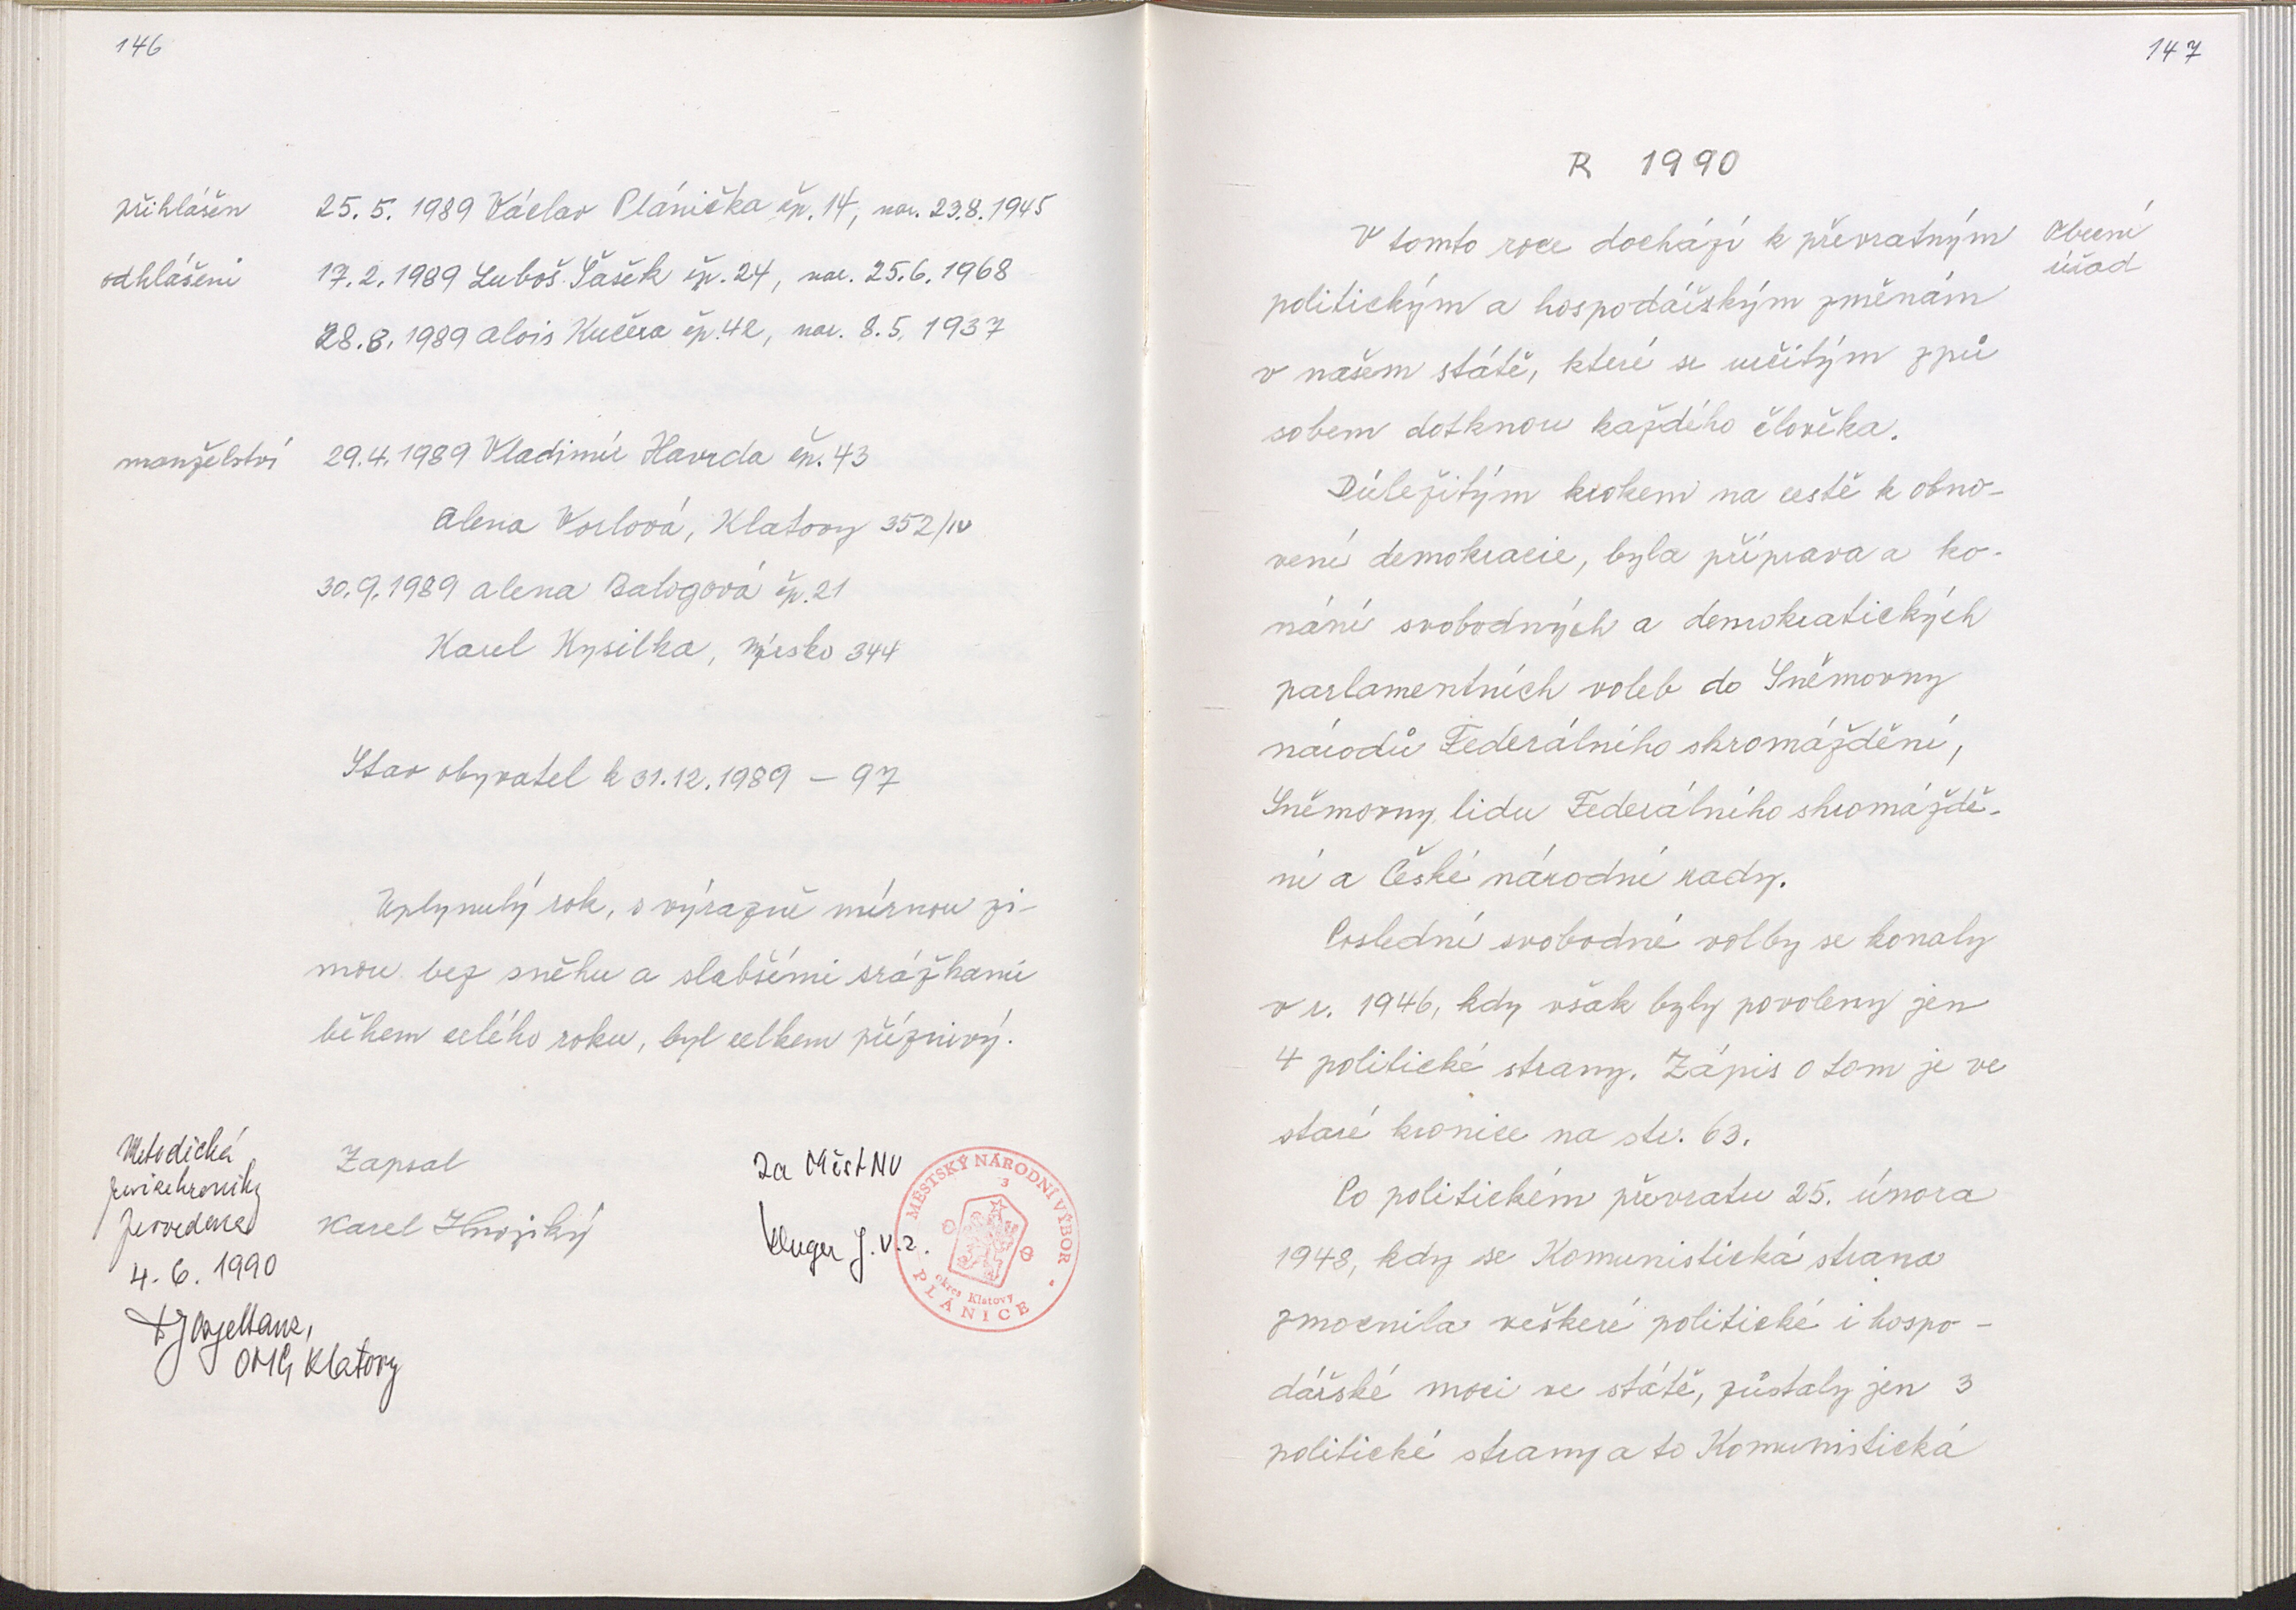 146
přihlášen 25. 5. 1989 Václav Plánička čp. 14, nar. 23.8.1945
odhlášeni 17. 2. 1989 Luboš Šašek čp. 24, nar. 25.6.1968
28. 8. 1989 Alois Kučera čp. 42, nar. 8. 5. 1937
manželství 29.4.1989 Vladimír Havrda čp. 43
Alena Vorlová, Klatovy 352/IV
30.9.1989 Alena Balogová čp. 21
Karel Kysilka, Nýrsko 344
Stav obyvatel k 31.12.1989 – 97
Uplynulý rok, s výrazně mírnou zi-
mou bez sněhu a slabšími srážkami
během celého roku, byl celkem příznivý.
Zapsal
Karel Hnojský
Za MěstNV
Kluger J. v.z.
MĚSTSKÝ NÁRODNÍ VÝBOR
3
okres Klatovy
PLÁNICE
Metodická
revize kroniky
provedena
4. 6. 1990
Klatovy
147
R 1990
Obecní
úřad
V tomto roce dochází k převratným
politickým a hospodářským změnám
v našem státě, které se určitým způ
sobem dotknou každého člověka.
Důležitým krokem na cestě k obno-
vení demokracie, byla příprava a ko-
nání svobodných a demokratických
parlamentních voleb do Sněmovny
národů Federálního shromáždění,
Sněmovny lidu Federálního shromáždě-
ní a České národní rady.
Poslední svobodné volby se konaly
v r. 1946, kdy však byly povoleny jen
4 politické strany. Zápis o tom je ve
staré kronice na str. 63.
Po politickém převratu 25. února
1948, kdy se Komunistická strana
zmocnila veškeré politické i hospo-
dářské moci ve státě, zůstaly jen 3
politické strany a to Komunistická